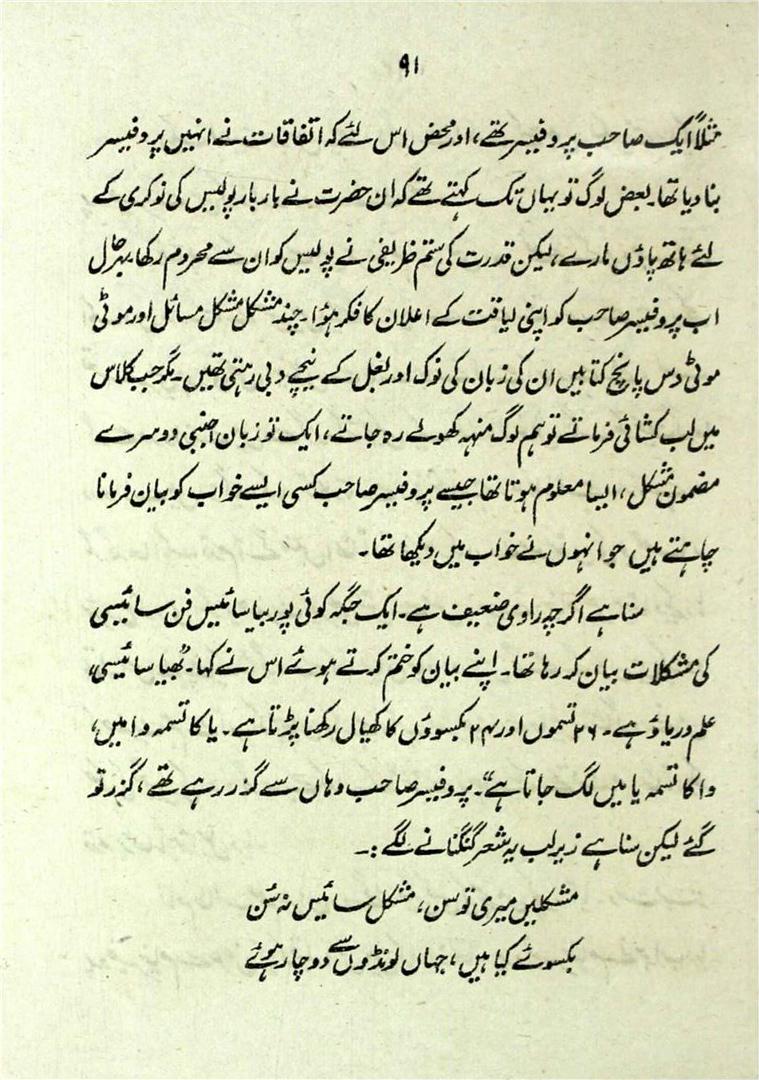 ۹۱
مثلاً ایک صاحب پروفیسر تھے، اور محض اس لئے کہ اتفاقات نے انہیں پروفیسر
بنا دیا تھا۔ بعض لوگ تو یہاں تک کہتے تھے کہ ان حضرت نے بار بار پولیس کی نوکری کے
لئے ہاتھ پاؤں مارے، لیکن قدرت کی ستم ظریفی نے پولیس کو ان سے محروم رکھا۔ بہر حال
اب پروفیسر صاحب کو اپنی لیاقت کے اعلان کا فکر ہؤا۔ چند مشکل مشکل مسائل اور موٹی
موٹی دس پانچ کتابیں ان کی زبان کی نوک اور بغل کے نیچے دبی رہتی تھیں۔ مگر جب کلاس
میں لب کشائی فرماتے تو ہم لوگ منہہ کھولے رہ جاتے، ایک تو زبان اجنبی دوسرے
مضمون مشکل، ایسا معلوم ہوتا تھا جیسے پروفیسر صاحب کسی ایسے خواب کو بیان فرمانا
چاہتے ہیں جو انہوں نے خواب میں دیکھا تھا۔
سنا ہے اگرچہ راوی ضعیف ہے۔ ایک جگہ کوئی پوربیا سائیس فن سائیسی
کی مشکلات بیان کر رہا تھا۔ اپنے بیان کو ختم کرتے ہوئے اس نے کہا۔ "بھیا سائیسی،
علم دریاؤ ہے۔ ۲۶ تسموں اور ۲۴ بکسوؤں کا کھیال رکھنا پڑتا ہے۔ یا کا تسمہ وا میں،
وا کا تسمہ یا میں لگ جاتا ہے"۔ پروفیسر صاحب وہاں سے گزر رہے تھے، گزر تو
گئے لیکن سنا ہے زیر لب یہ شعر گنگنانے لگے :۔
مشکلیں میری تو سن، مشکل سائیس نہ سُن
بکسوئے کیا ہیں، جہاں لونڈوں سے دو چار ہوئے